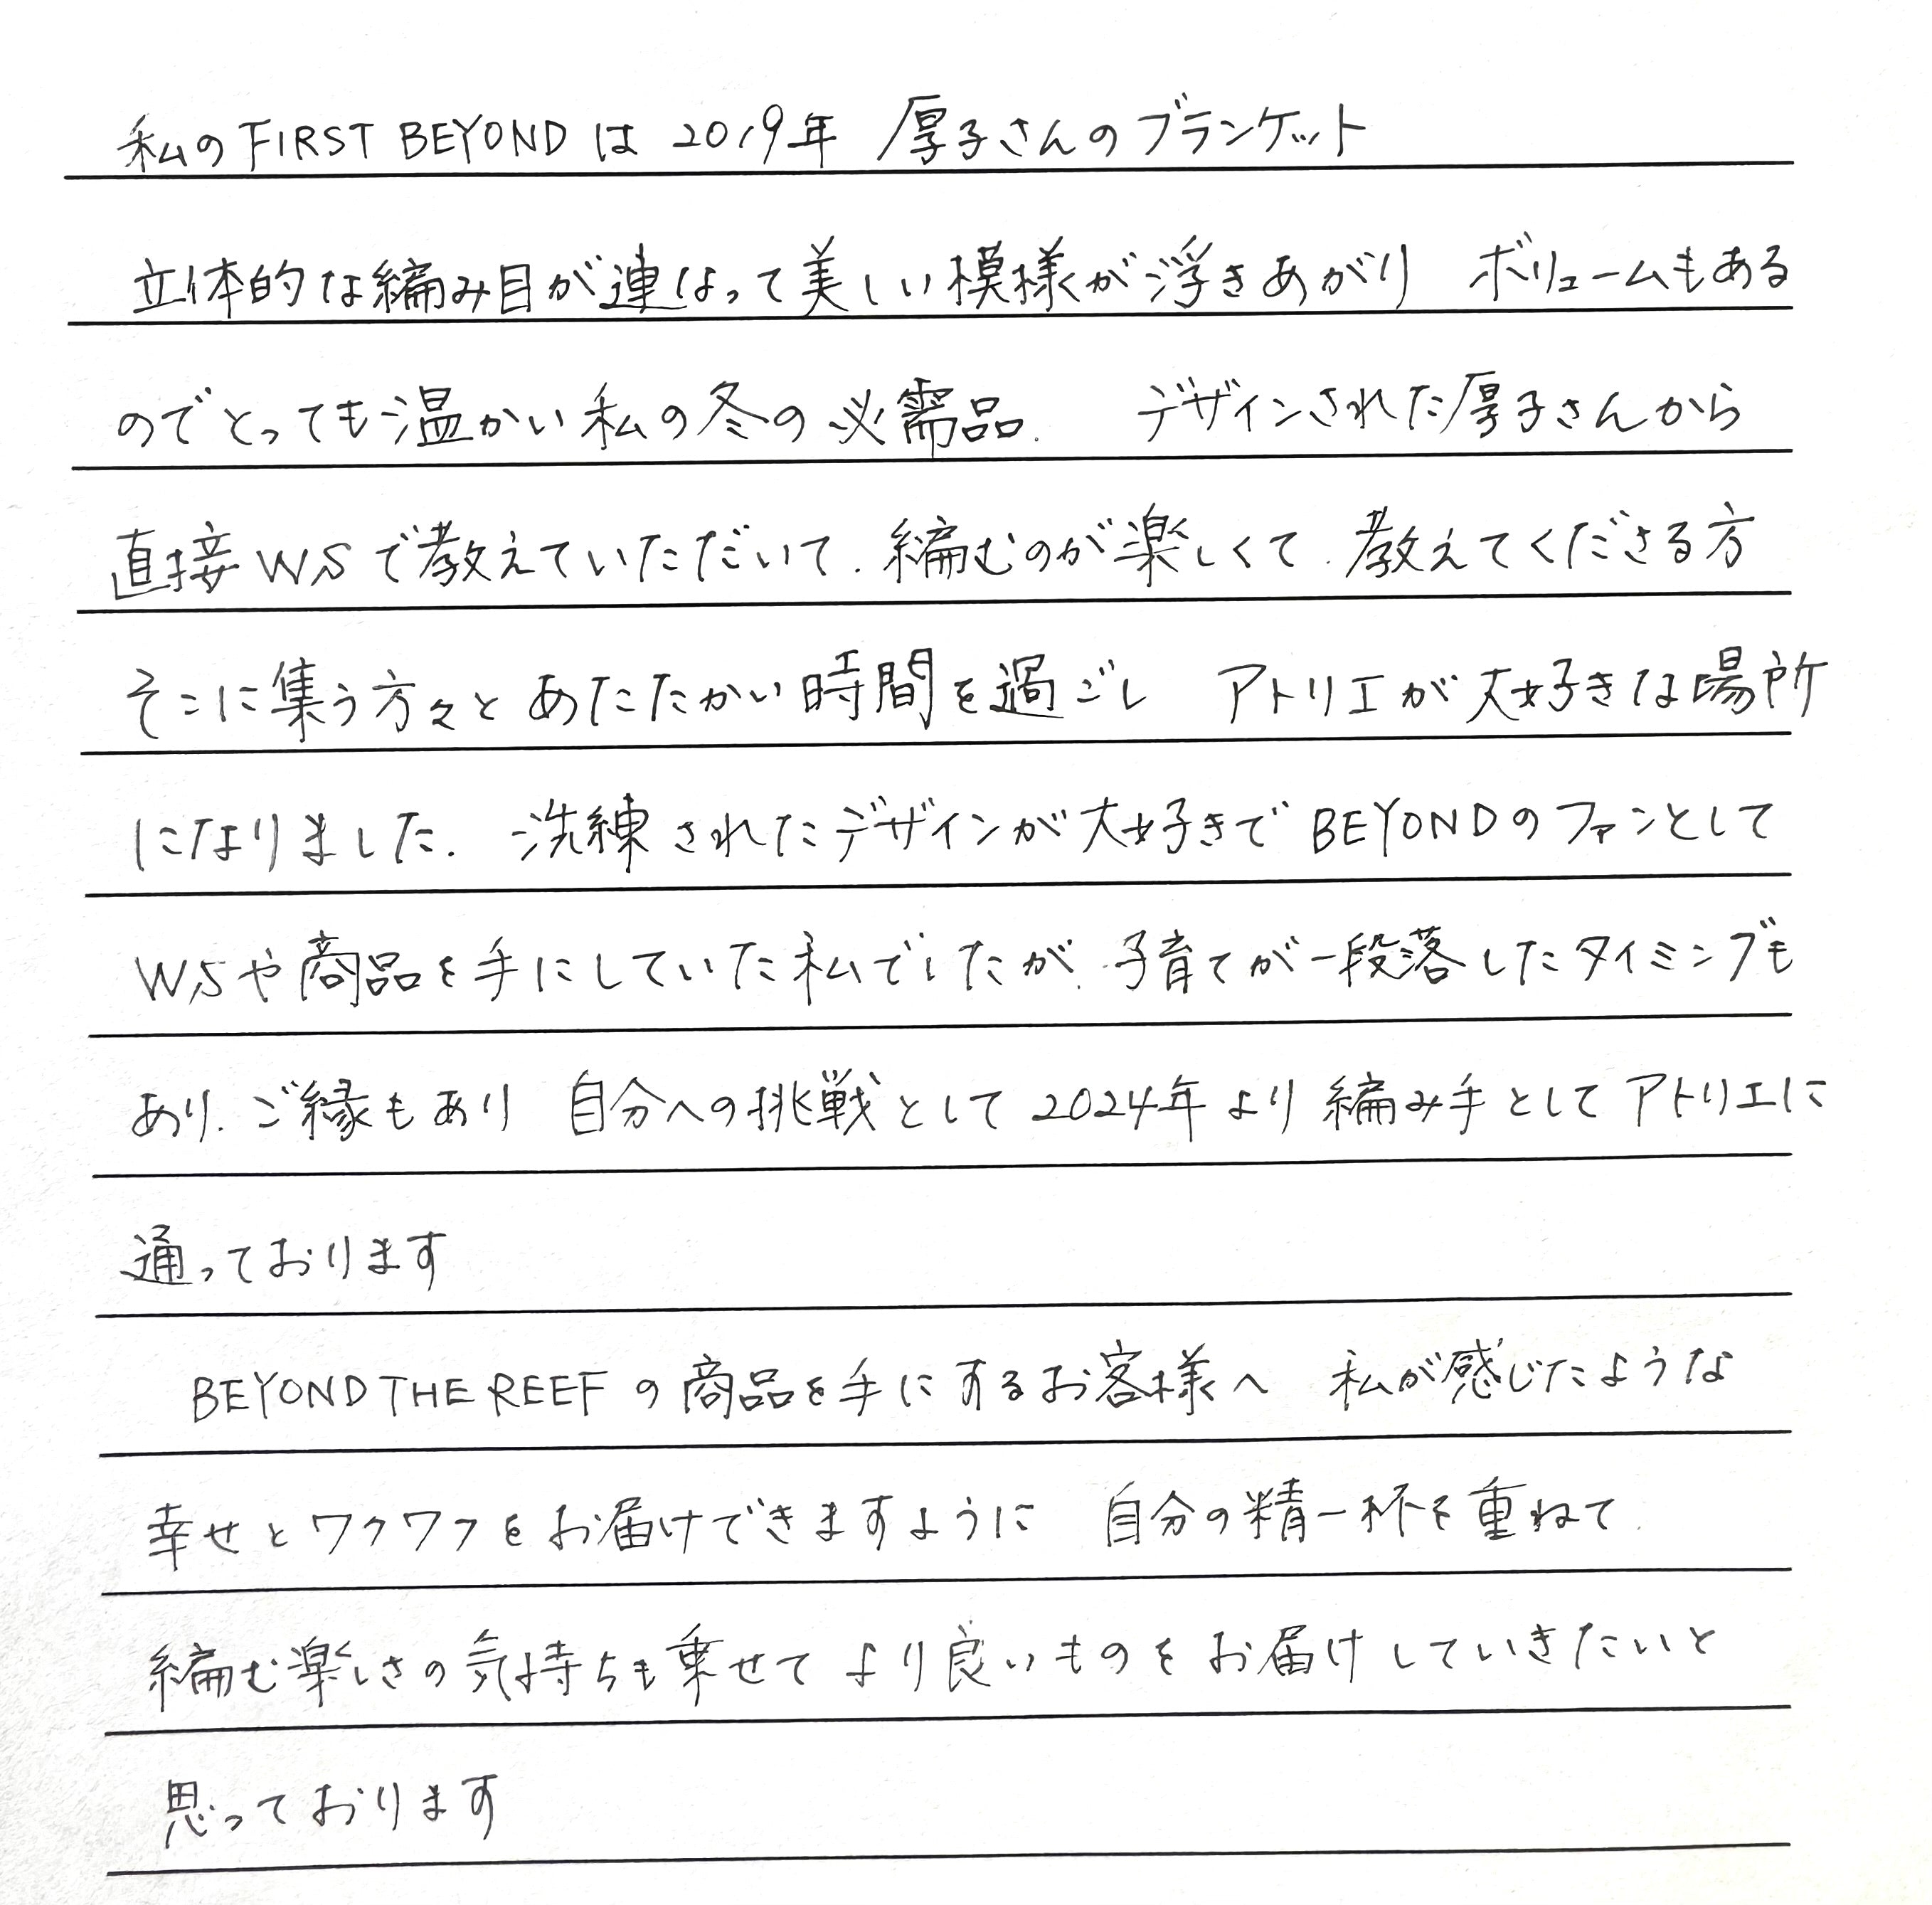 私のFIRST BEYONDは 2019年 厚子さんのブランケット
立体的な編み目が連なって美しい模様が浮きあがり ボリュームもある
のでとっても温かい私の冬の必需品. デザインされた厚子さんから
直接WSで教えていただいて.編むのが楽しくて.教えてくださる方
そこに集う方々と あたたかい時間を過ごし アトリエが大好きな場所
になりました. 洗練されたデザインが大好きで BEYONDのファンとして
WSや商品を手にしていた私でしたが.子育てが一段落したタイミングも
あり.ご縁もあり 自分への挑戦として 2024年より 編み手としてアトリエに
通っております
BEYOND THE REEFの商品を手にするお客様へ 私が感じたような
幸せとワクワクをお届けできますように 自分の精一杯を重ねて.
編む楽しさの気持ちも乗せて より良いものをお届けしていきたいと
思っております